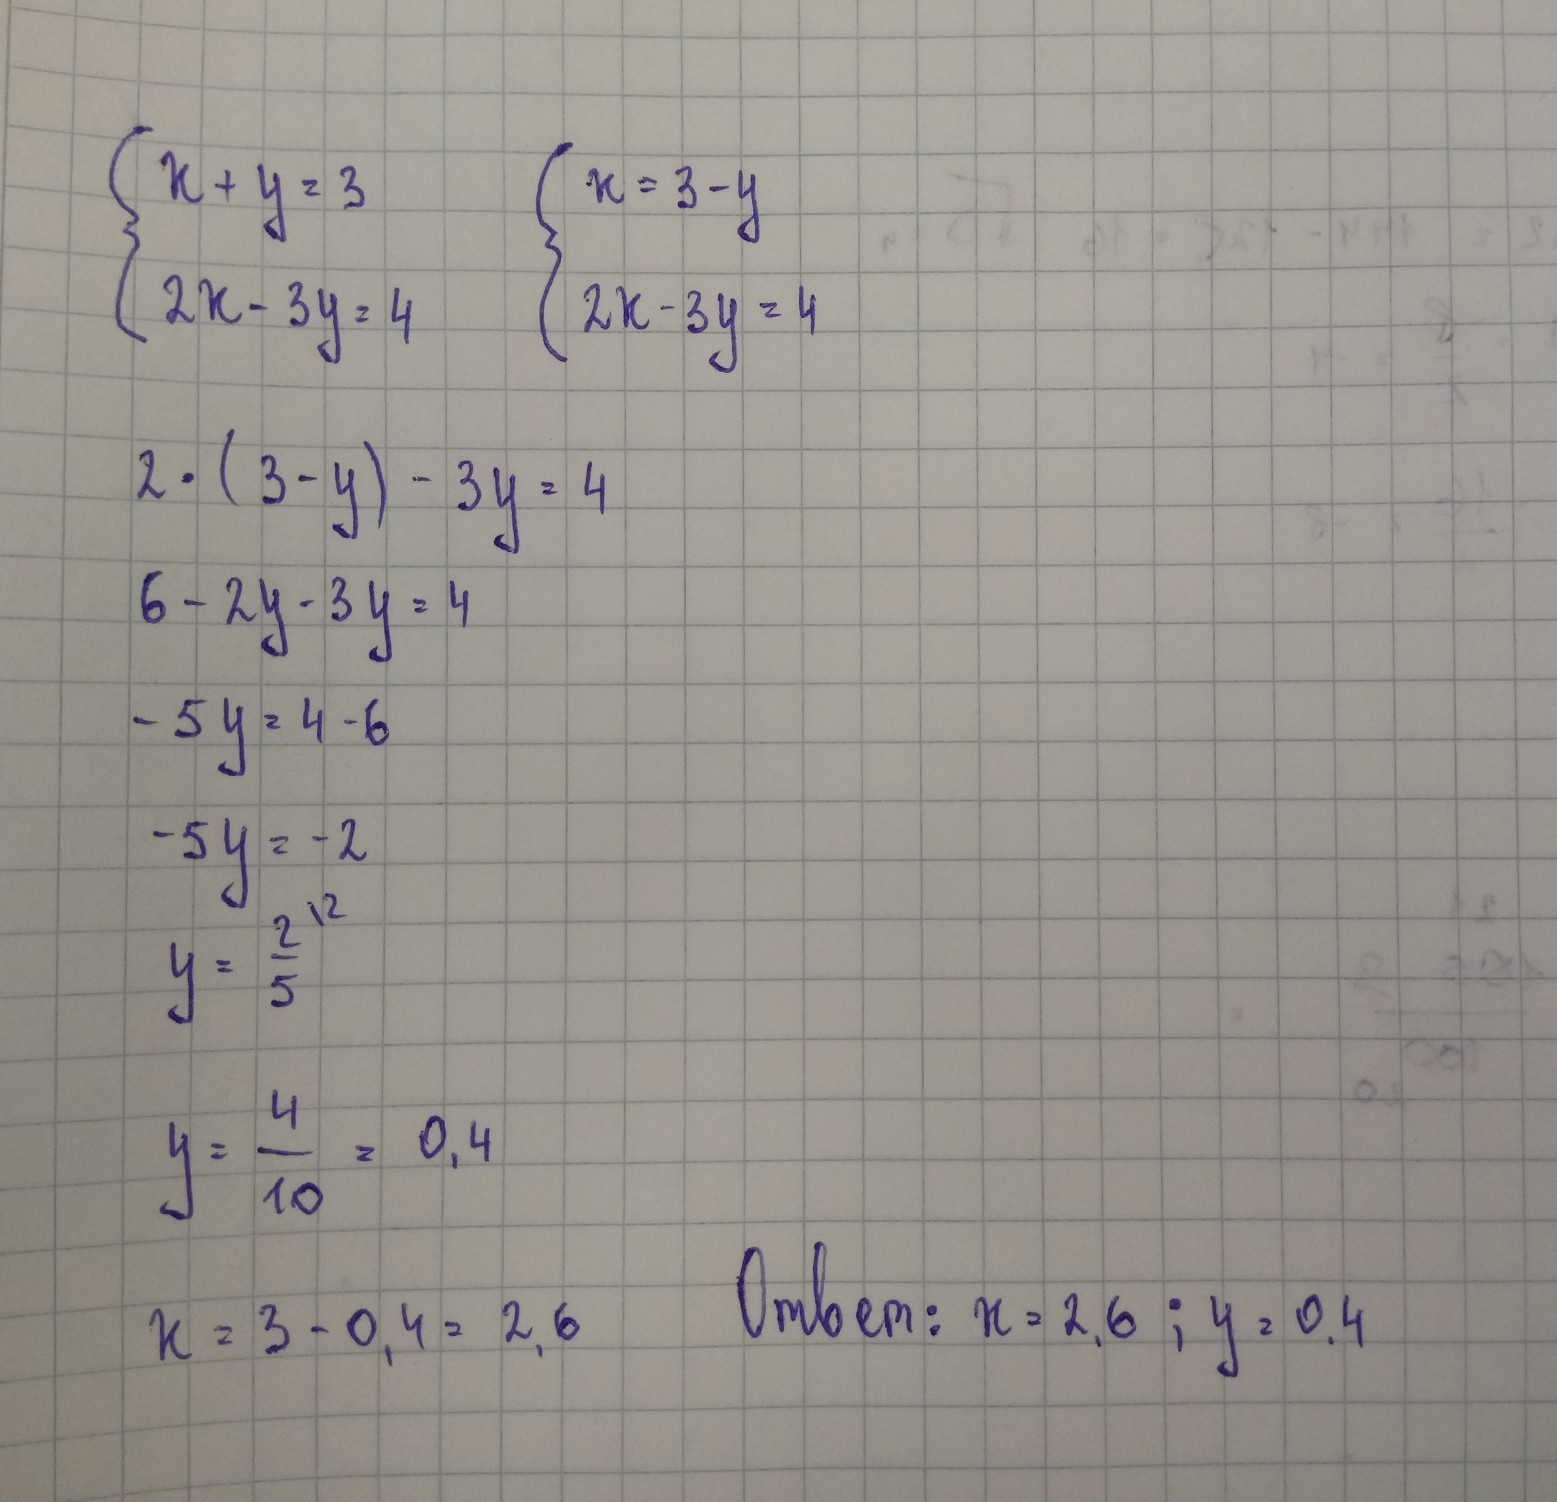 x + y = 3
2x - 3y = 4
x = 3 - y
2x - 3y = 4
2 · (3 - y) - 3y = 4
6 - 2y - 3y = 4
-5y = 4 - 6
-5y = -2
y = 2/5 \2
y = 4/10 = 0,4
x = 3 - 0,4 = 2,6
Ответ: x = 2,6 ; y = 0,4